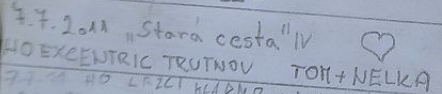 7.7.2011 „Stará cesta" IV
HO EXCENTRIC TRUTNOV TOM + NELKA
HO LEZCI